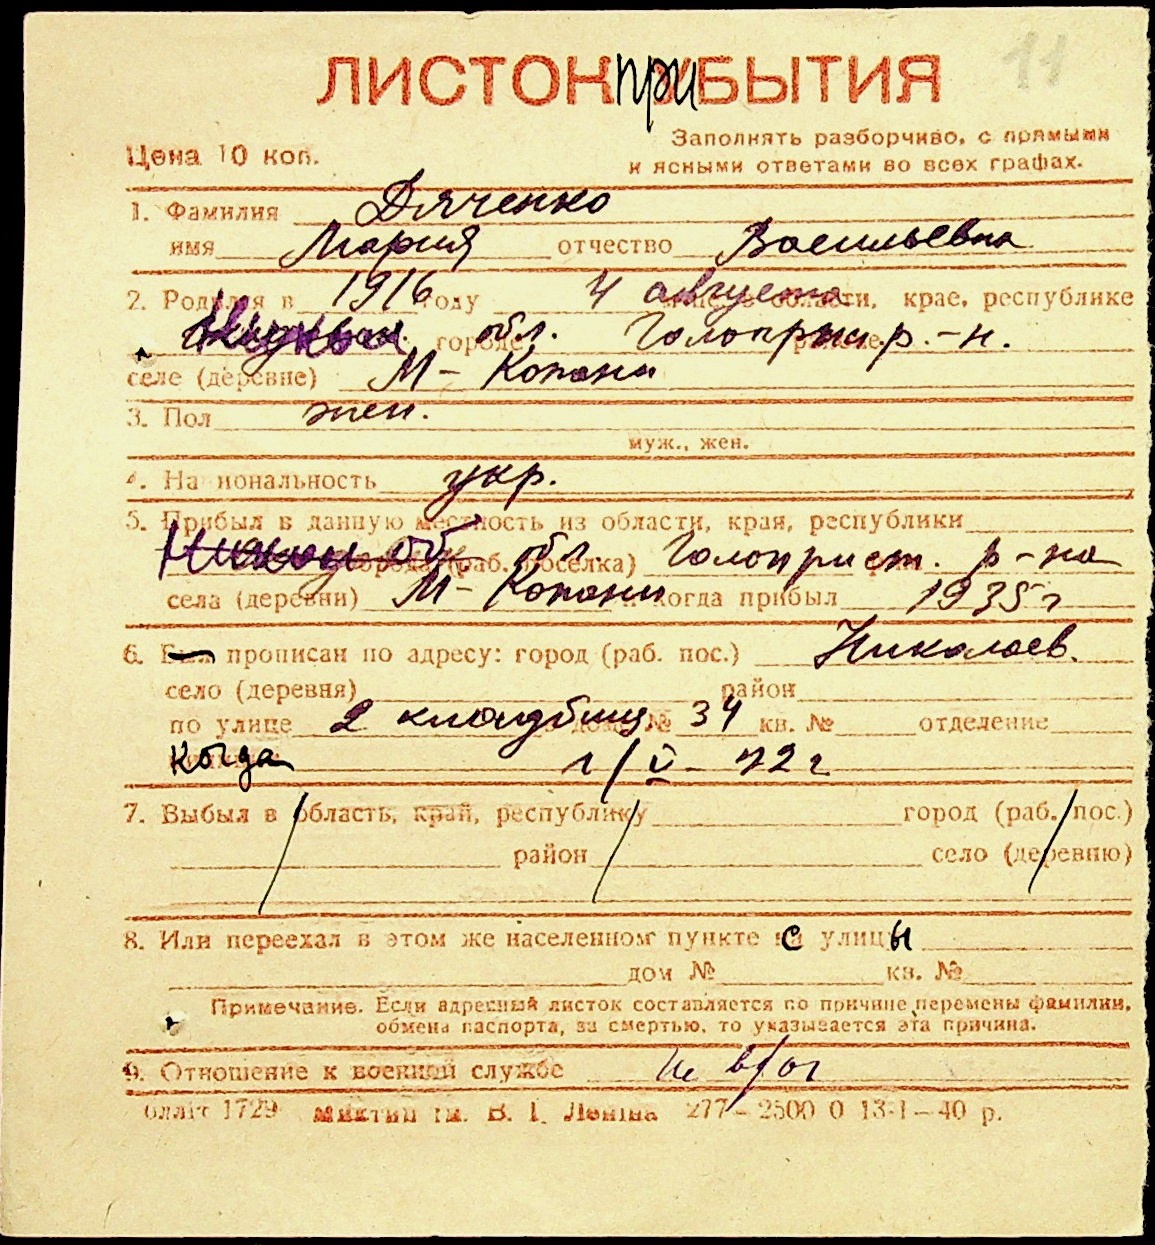 11
ЛИСТОК ПРИБЫТИЯ
Цена 10 коп.
Заполнять разборчиво, с прямыми
и ясными ответами во всех графах.
1. Фамилия Дяченко
имя Мария отчество Васильевна
2. Родился в 1916 году 4 августа области, крае, республике
обл. городе Голоприст р.-н.
селе (деревне) М-Копани
3. Пол жен.
муж., жен.
4. Национальность укр.
5. Прибыл в данную местность из области, края, республики
обл. города (раб. поселка) Голоприст. р-на
села (деревни) М-Копани и когда прибыл 1935 г
6. прописан по адресу: город (раб. пос.) Николаев.
село (деревня) район
по улице 2 кладбищ дом № 34 кв. № отделение
когда 42 г
7. Выбыл в область, край, республику город (раб. пос.)
район село (деревню)
8. Или переехал в этом же населенном пункте с улицы
дом № кв. №
Примечание. Если адресный листок составляется по причине перемены фамилии,
обмена паспорта, за смертью, то указывается эта причина.
9. Отношение к военной службе не в/об
1729 им. В. І. Леніна 277-2500 0 13-1-40 р.